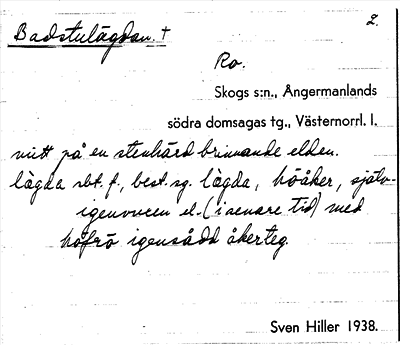 2.
Badstulägdan. †
Ro.
Skogs s:n., Ångermanlands
södra domsagas tg., Västernorrl. l.
mitt på en stenhård brinnande elden.
lägda sbt. f., best. sg. lägda, höåker, själv-
igenvuxen el. (i senare tid) med
höfrö igensådd åkerteg.
Sven Hiller 1938.